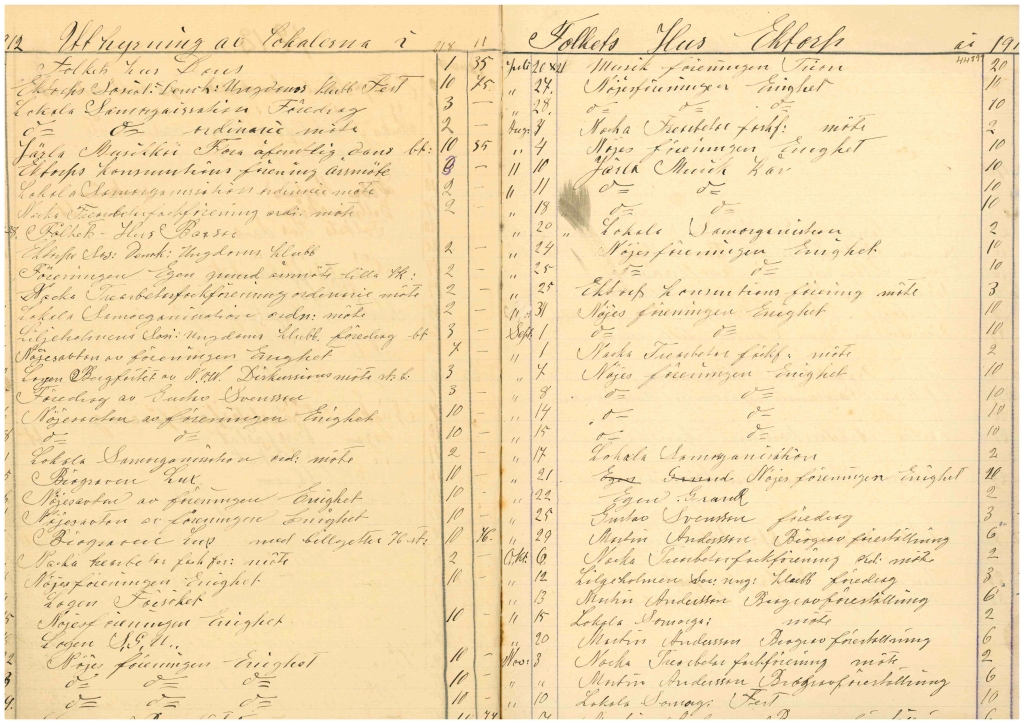 212 Uthyrning av Lokalerna i
Folkets Hus Dans 1 35
Ektorps Social: Demk: Ungdoms Klubb Fest 10 75
Lokala Samorganisation Föredrag 3 —
d= d= ordinarie möte 2 —
Järla Musikkår Flora offentlig Dans bt: 10 35
Ektorps konsumtions förening årsmöte 3
Lokala Samorganisation ordinarie möte 2 —
Nacka Träarbetarfackförening ord: möte 2 —
Folkets Hus Basar
Ektorps Sos: Demk: Ungdoms Klubb 2 —
Föreningen Egen grund årsmöte lilla 2 —
Nacka Träarbetarfackförening ordinarie möte 2 —
Lokala Samorganisation ordn: möte 2 —
Liljeholmens Sos: Ungdoms Klubb föredrag bt 3 —
Nöjesavton av föreningen Enighet 7 —
Logen Bergfästet av N.O.V. Diskussions möte 3 —
Föredrag av Gustav Svensson 3 —
Nöjesavton av föreningen Enighet 10 —
d= d= 10 —
Lokala Samorganisation ord: möte 2 —
Biografen 10 —
Nöjesavton av föreningen Enighet 10 —
Nöjesavton av föreningen Enighet 10 —
Biografen med biljetter 76 st 10 76
Nacka fackför: möte 2 —
Nöjesföreningen Enighet 10 —
Logen
Nöjesföreningen Enighet 10 —
Logen
Nöjes föreningen Enighet 10 —
d= d= d= 10 —
d= d= d= 10 —
Folkets Hus Ektorp år 191
Juli 20 21 Musik föreningen 20
" 27 Nöjesföreningen Enighet 10
" 28 d= d= d= 10
Aug: 1 Nacka Träarbetar fackf: möte 2
" 4 Nöjes föreningen Enighet 10
" 10 Järla Musik Kår 10
" 11 d= d= 10
" 18 d= d= 10
" 20 " Lokala Samorganisation 2
" 24 Nöjesföreningen Enighet 10
" 25 d= d= 10
" 25 Ektorps konsumtions förening möte 3
" 31 Nöjes föreningen Enighet 10
Sept. 1 d= d= 10
" 1 Nacka Träarbetar fackf: möte 2
" 7 Nöjes föreningen Enighet 10
" 8 d= d= 10
" 14 d= d= 10
" 15 d= d= 10
" 17 Lokala Samorganisation 2
" 21 Egen Grund Nöjes föreningen Enighet 10
" 22 Egen Grund 2
" 25 Gustav Svensson föredrag 3
" 29 Martin Andersson Biograv föreställning 6
Okt. 6 Nacka Träarbetarfackförening ord: möte 2
" 12 Liljeholmen Sos: ung: klubb föredrag 3
" 13 Martin Andersson Biogravföreställning 6
" 15 Lokala Samorga: möte 2
" 20 Martin Andersson Biogravföreställning 6
Nov: 3 Nacka Träarbetar fackförening möte 2
" " Martin Andersson Biogravföreställning 6
" 10 Lokala Samorg: Fest 10